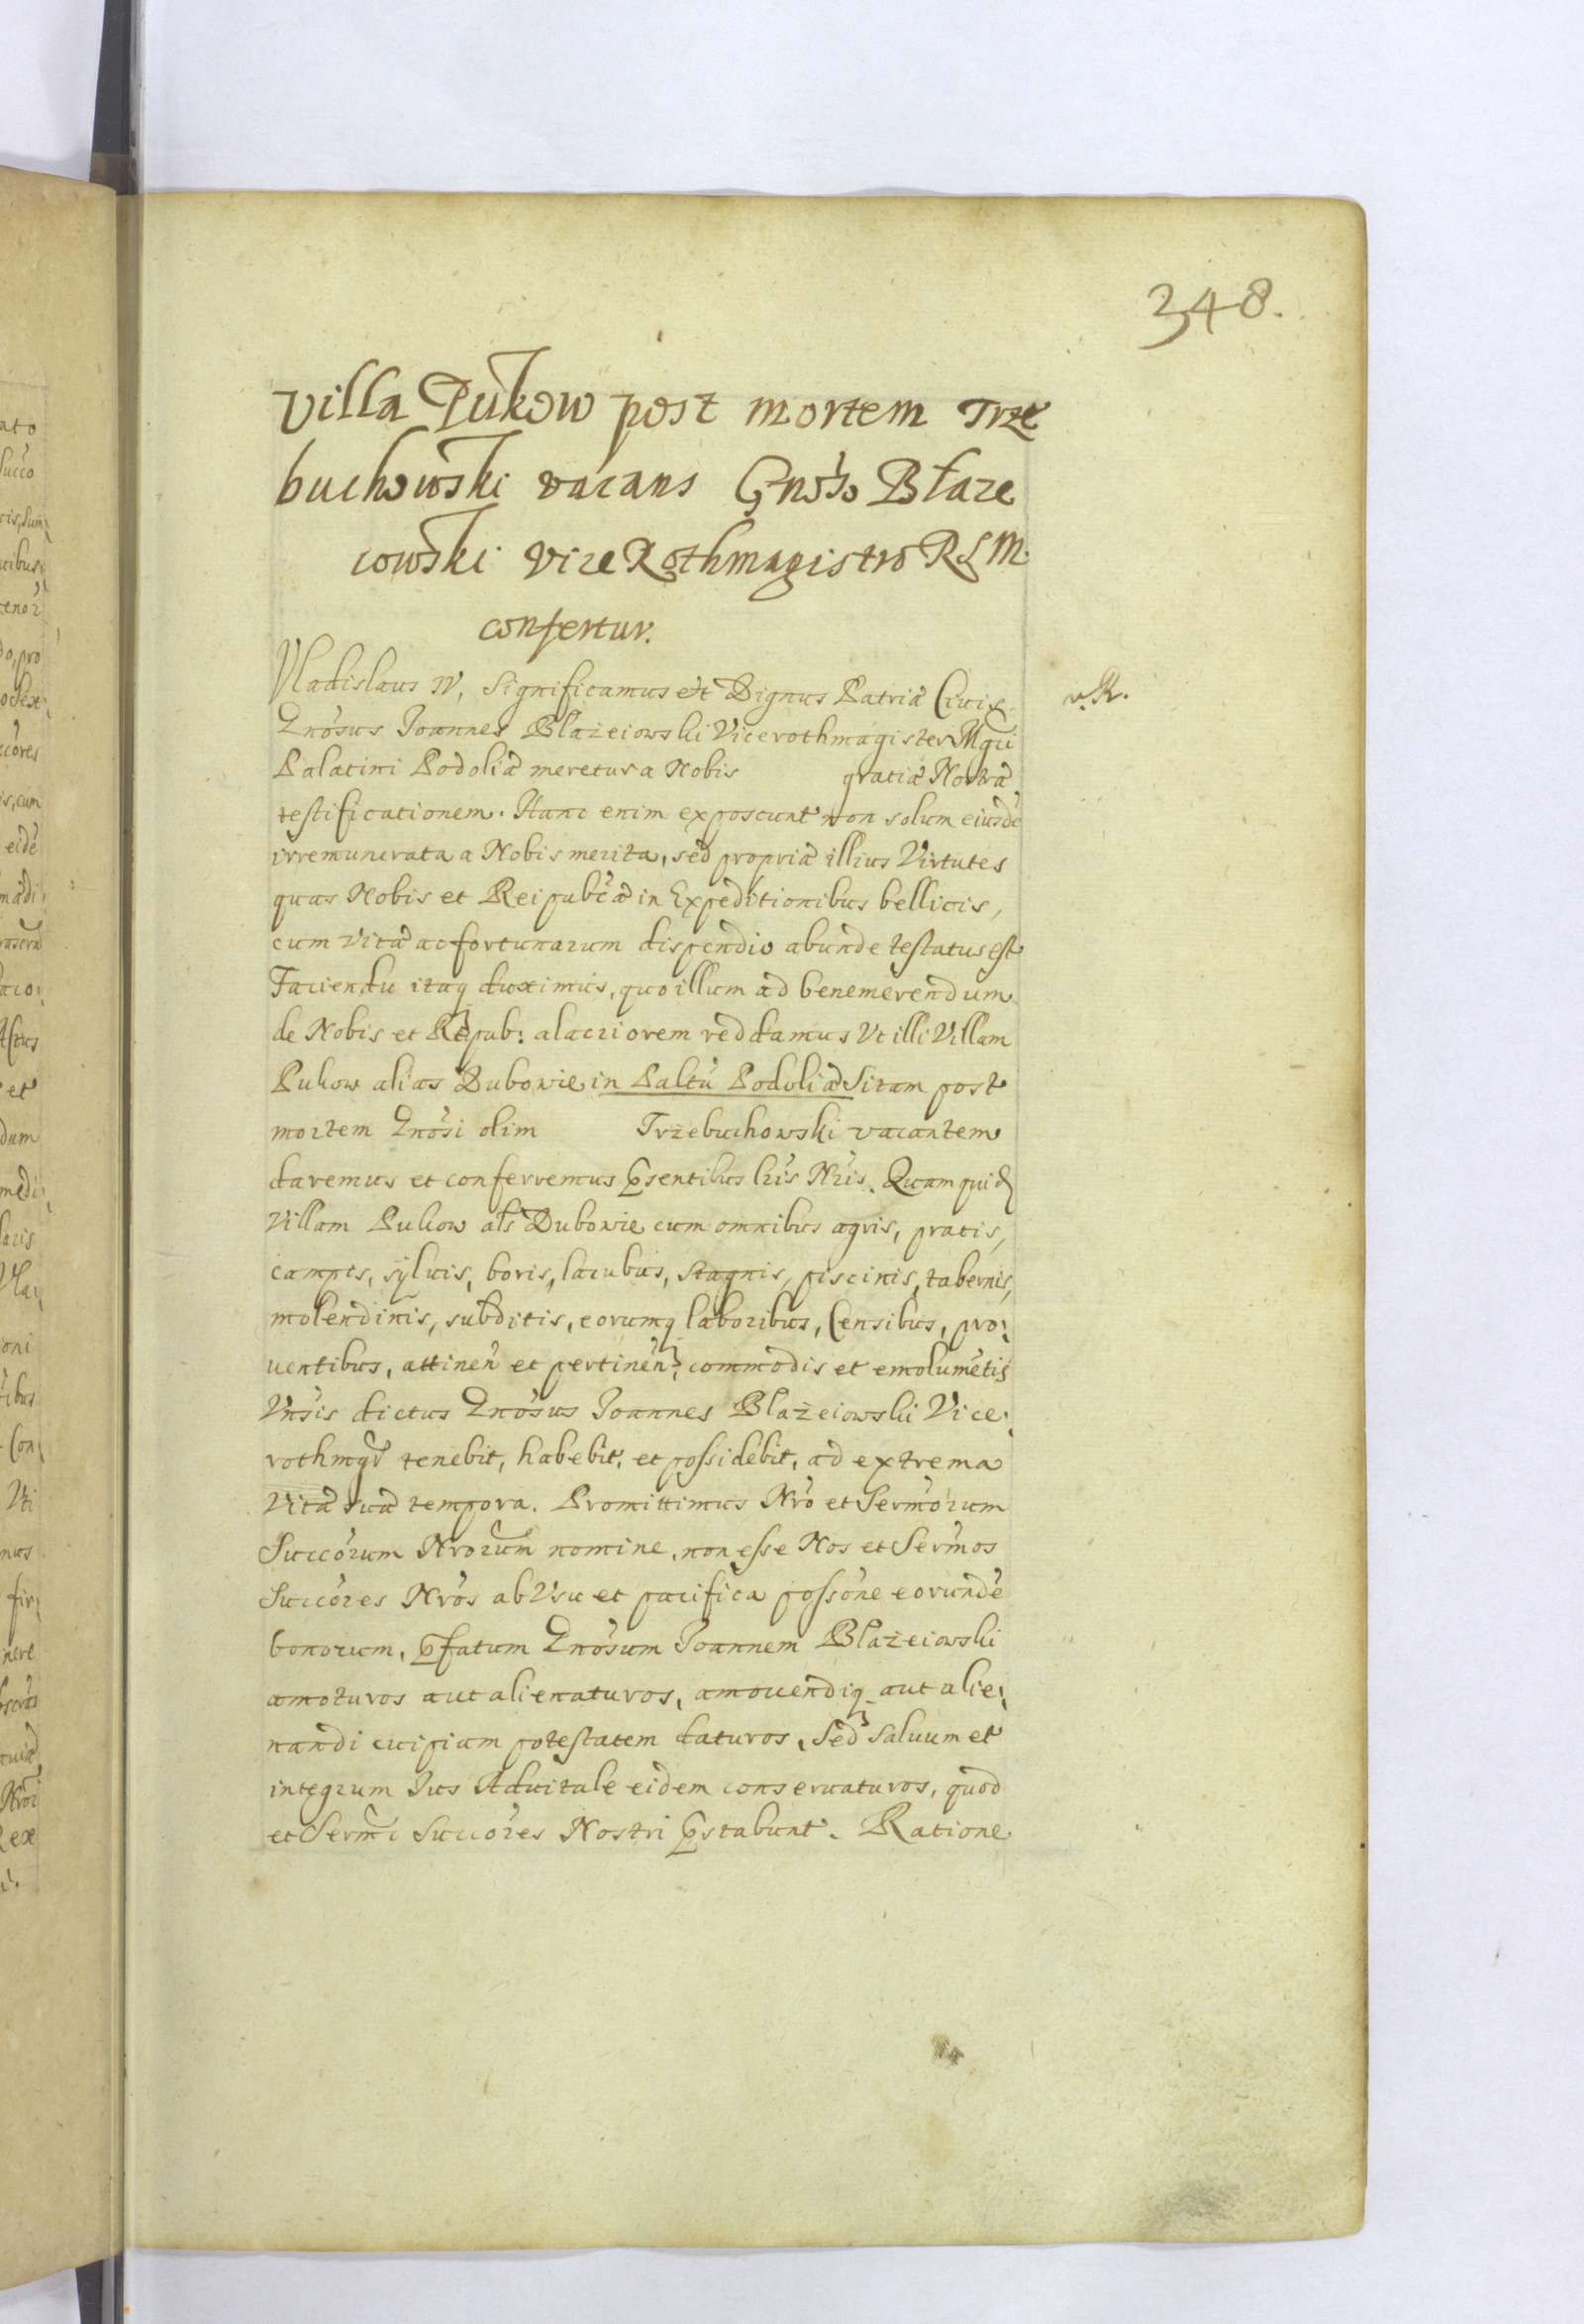 348.
Villa Pukow post mortem Trze
buchowski vacans Gnoso Błaze
iowski ViceRothmagistro R S M.
confertur.
Vladislaus IV, Significamus etc Dignus Patriæ Civis v. R.
Gnosus Joannes Błażeiowski Vicerothmagister Mgci
Palatini Podoliæ meretur a Nobis gratiæ Nostræ
testificationem. Hanc enim exposcunt non solum eiusdē
irremunerata a Nobis merita, sed propriæ illius Virtutes
quas Nobis et Reipubcæ in Expeditionibus bellicis,
cum vitæ ac fortunarum dispendio abunde testatus est
Faciendū itaq duximus, quo illum ad benemerendum
de Nobis et Repub: alacriorem reddamus Vt illi Villam
Pukow alias Dubowie in Paltū Podoliæ Sitam post
mortem Gnosi olim Trzebuchowski vacantem
daremus et conferremus Præsentibus lris Nris. Quam quid
Villam Pukow als Dubowie cum omnibus agris, pratis,
campis, sylvis, boris, lacubus, stagnis, piscinis, tabernis,
molendinis, subditis, eorumq laboribus, Censibus, pro:
ventibus, attinen et pertinen: commodis et emolumētis
Vnsis dictus Gnosus Joannes Błażeiowski Vice:
rothmgr tenebit, habebit, et possidebit, ad extrema
Vitæ suæ tempora. Promittimus Nro et Sermorum
Succorum Nrorum nomine, non esse Nos et Sermos
Succores Nros ab Vsu et pacifica possone eorundē
bonorum, præfatum Gnosum Joannem Błażeiowski
amoturos aut alienaturos, amovendiq aut alie:
nandi cuipiam potestatem daturos, Sed Salvum et
integrum Jus Advitale eidem conservaturos, quod
et Sermi Succores Nostri Præstabunt. Ratione